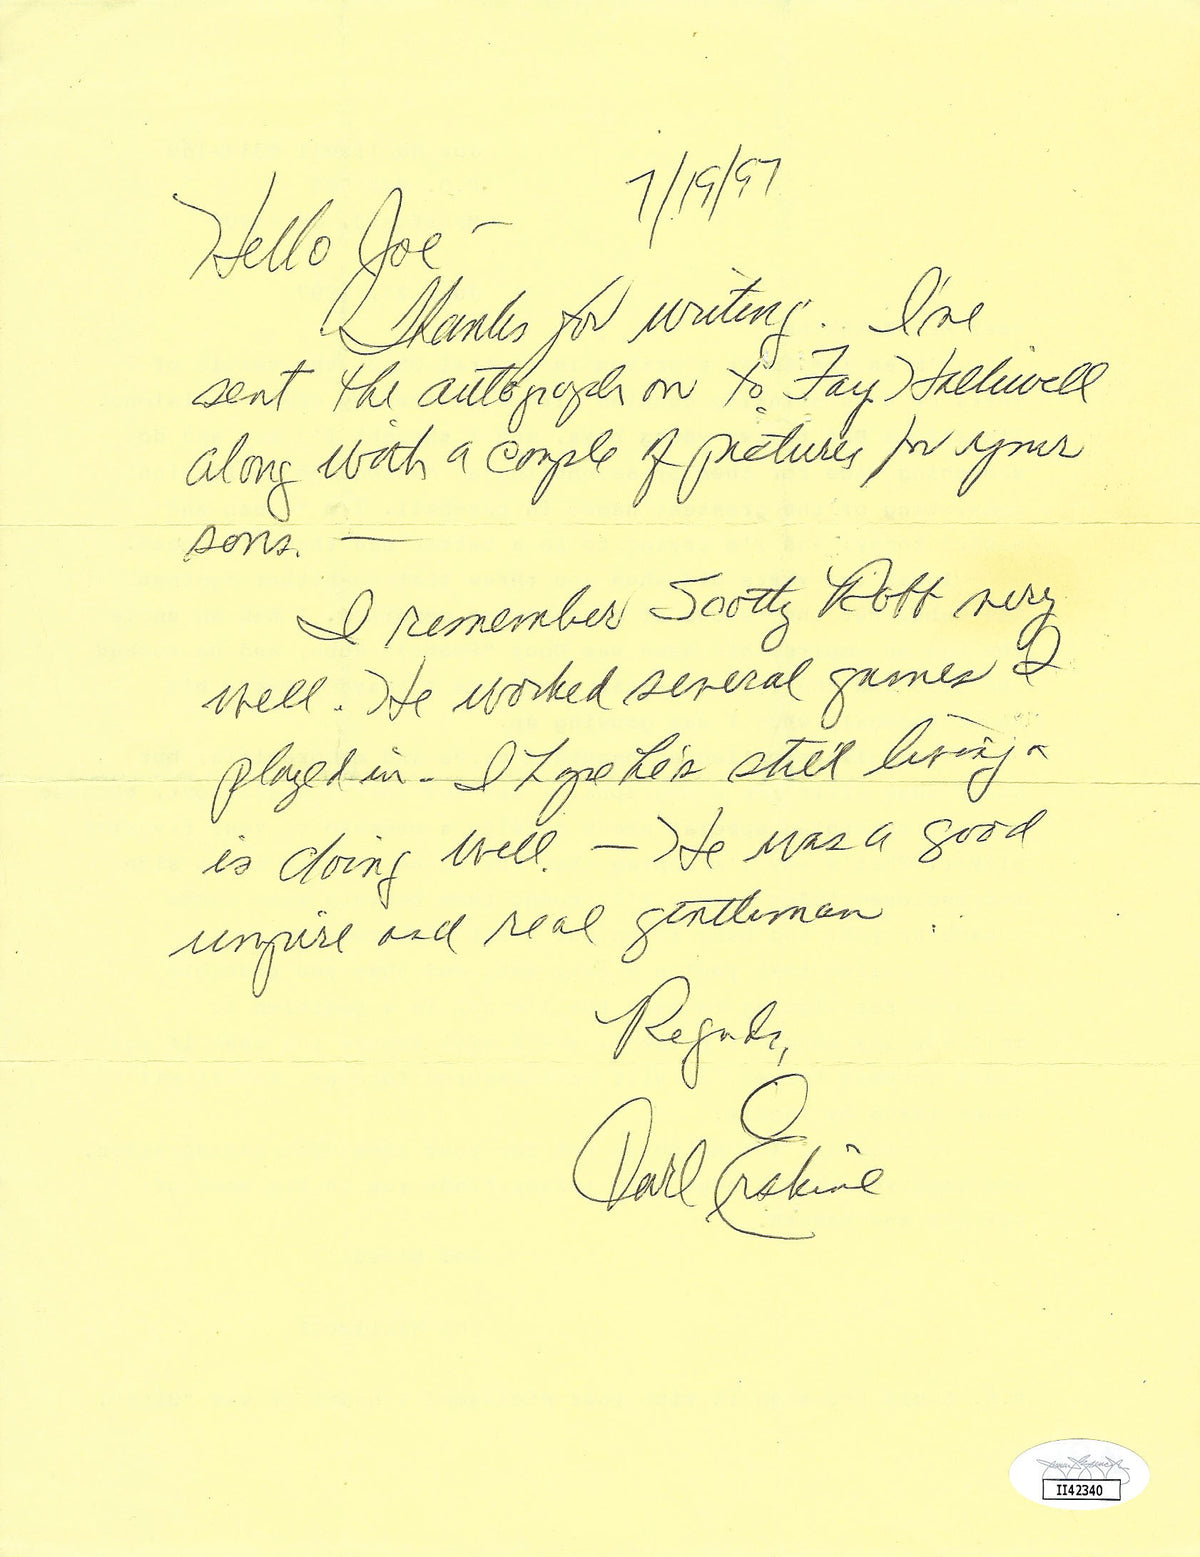 7/19/97
Hello Joe -
Thanks for writing. I've
sent the autograph on to Fay Halliwell
along with a couple of pictures for your
sons. —
I remember Scotty Robb very
well. He worked several games I
played in - I hope he's still living &
is doing well. — He was a good
umpire and real gentleman.
Regards,
Carl Erskine
II42340